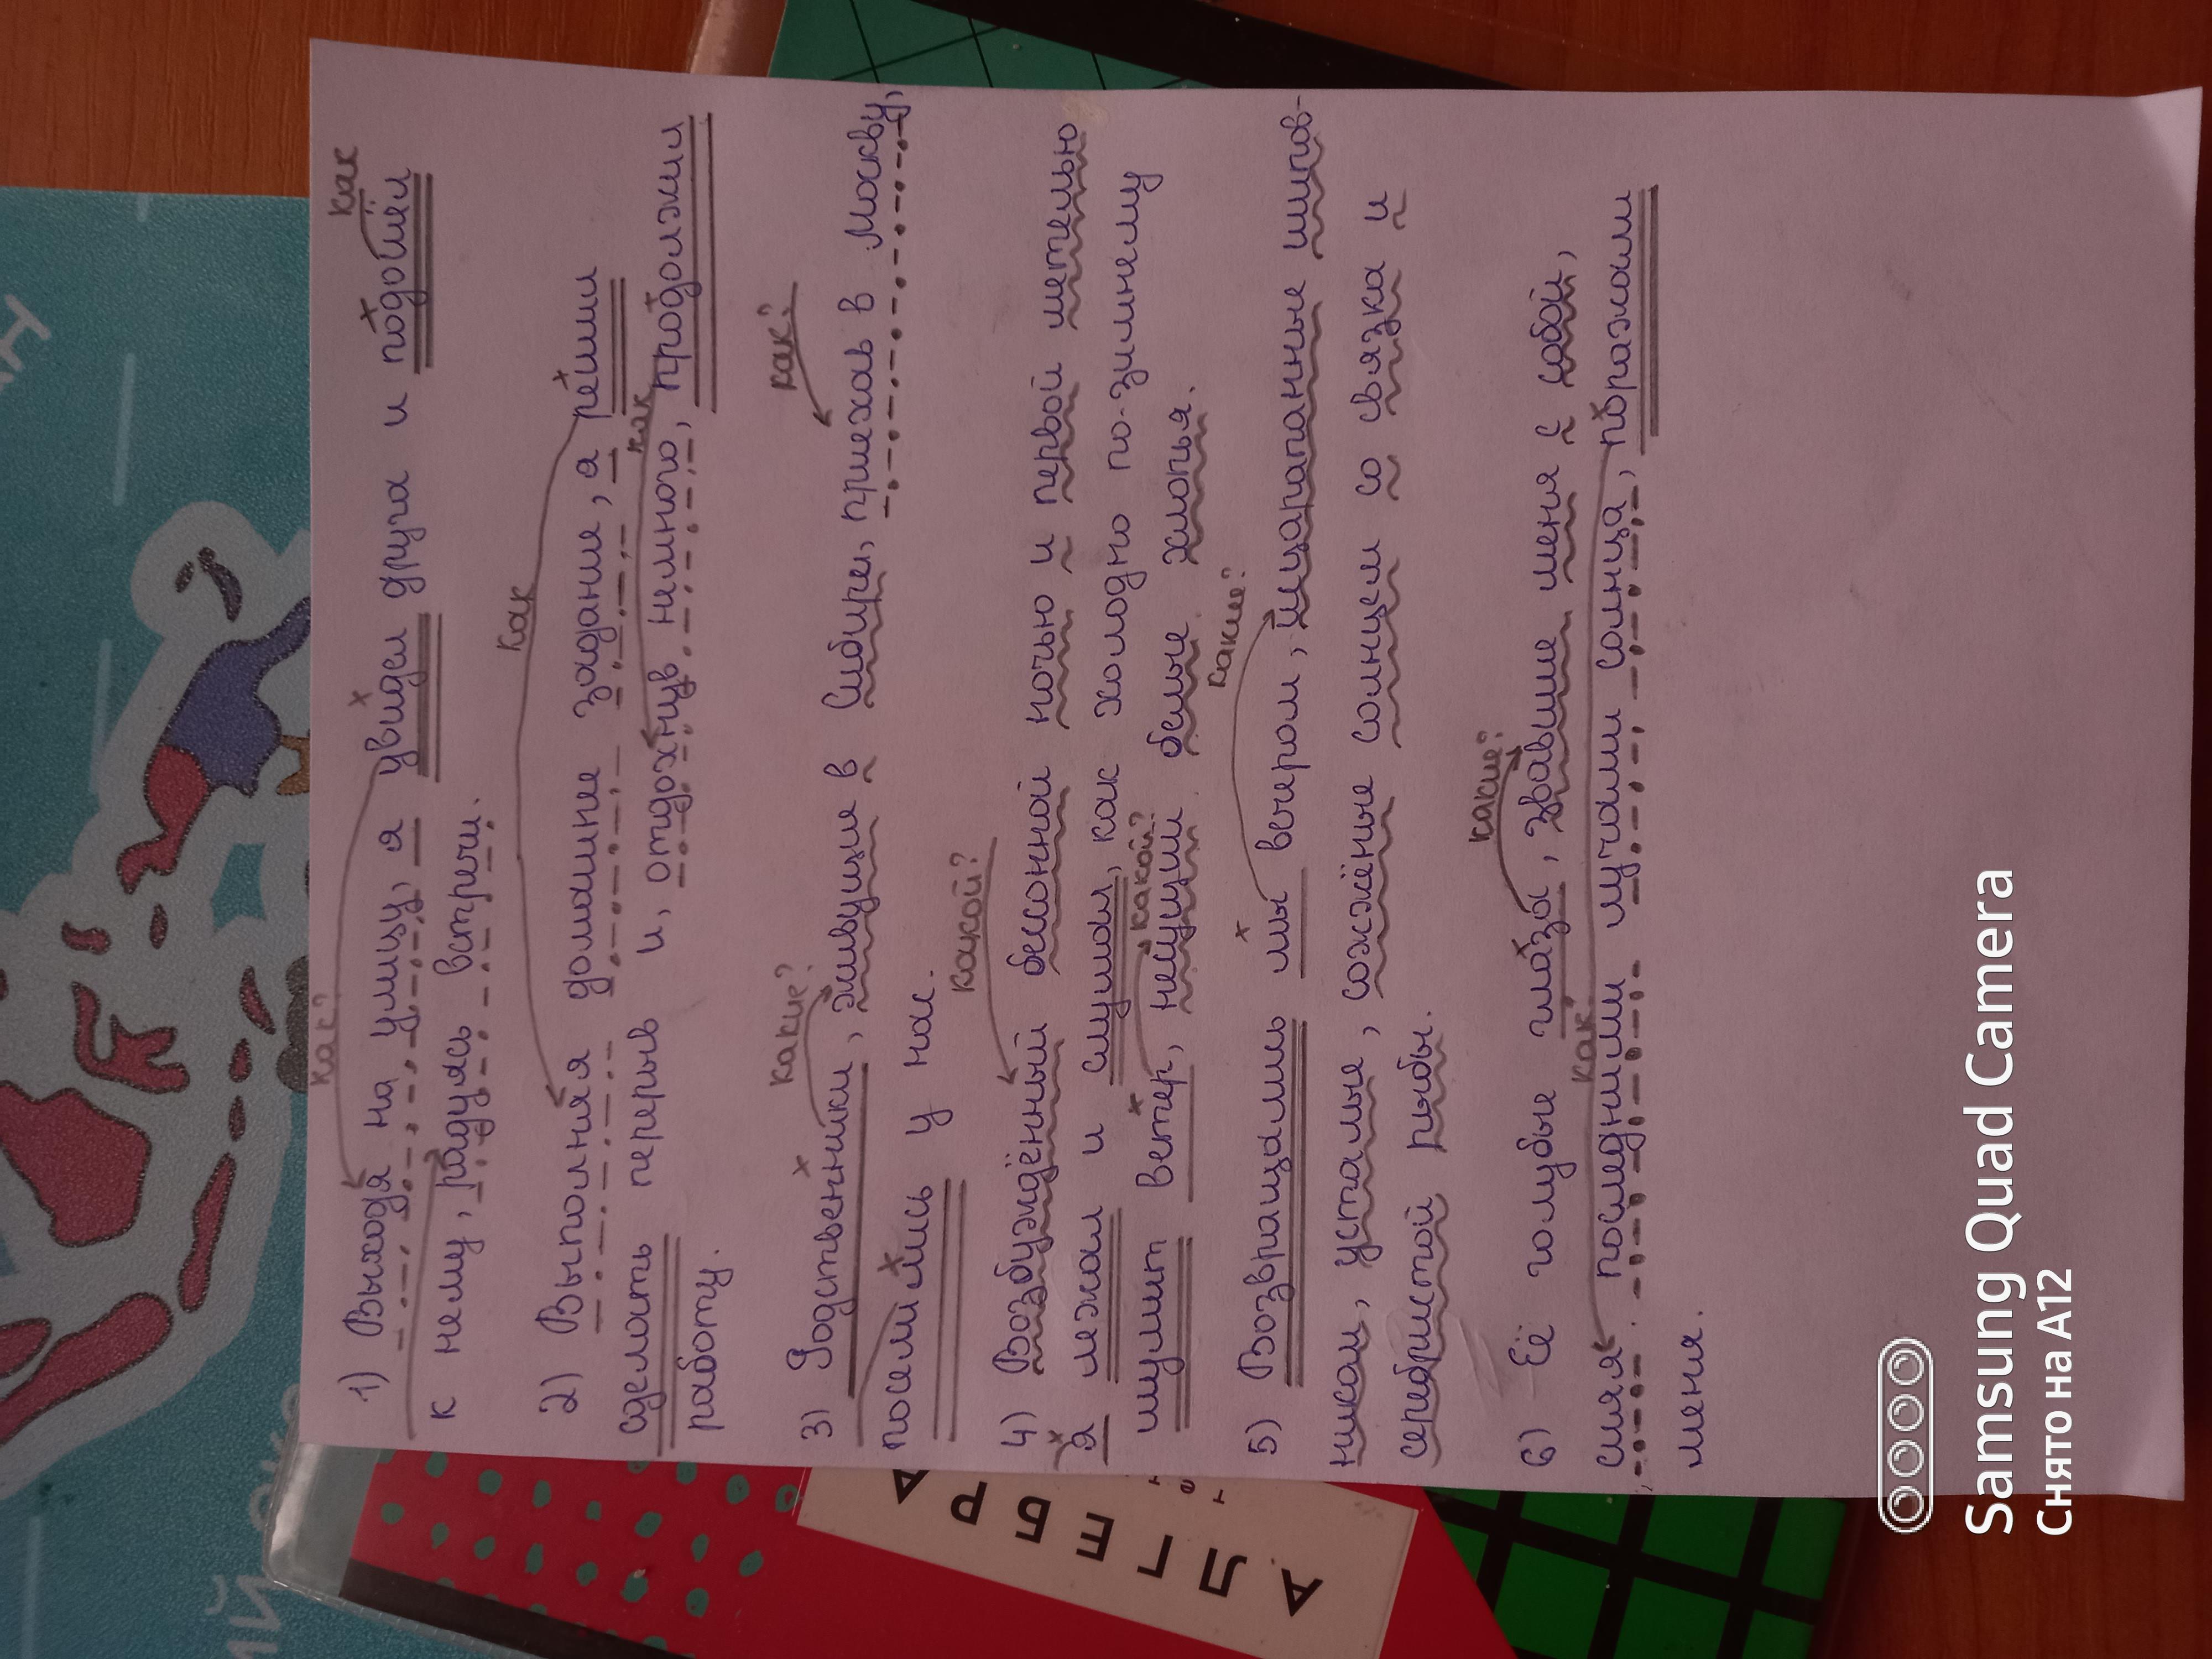 как
как?
1) Выходя на улицу, я увидел друга и подошёл
к нему, радуясь встречи.
как
2) Выполняя домашнее задание, я решил
как
сделать перерыв и, отдохнув немного, продолжил
работу.
какие?
как?
3) Родственники, живущие в Сибири, приехав в Москву,
поселились у нас.
какой?
4) Возбуждённый бессонной ночью и первой метелью
я лежал и слушал, как холодно по-зимнему
какой?
шумит ветер, несущий белые хлопья.
какие?
5) Возвращались мы вечером, исцарапанные шипов-
ником, усталые, сожжённые солнцем со срязка и
серебристой рыбы.
какие?
6) Её голубые глаза, звавшие меня с собой,
как
сияя последними лучами солнца, поражали
меня.
АЛГЕБРА
Samsung Quad Camera
Снято на A12